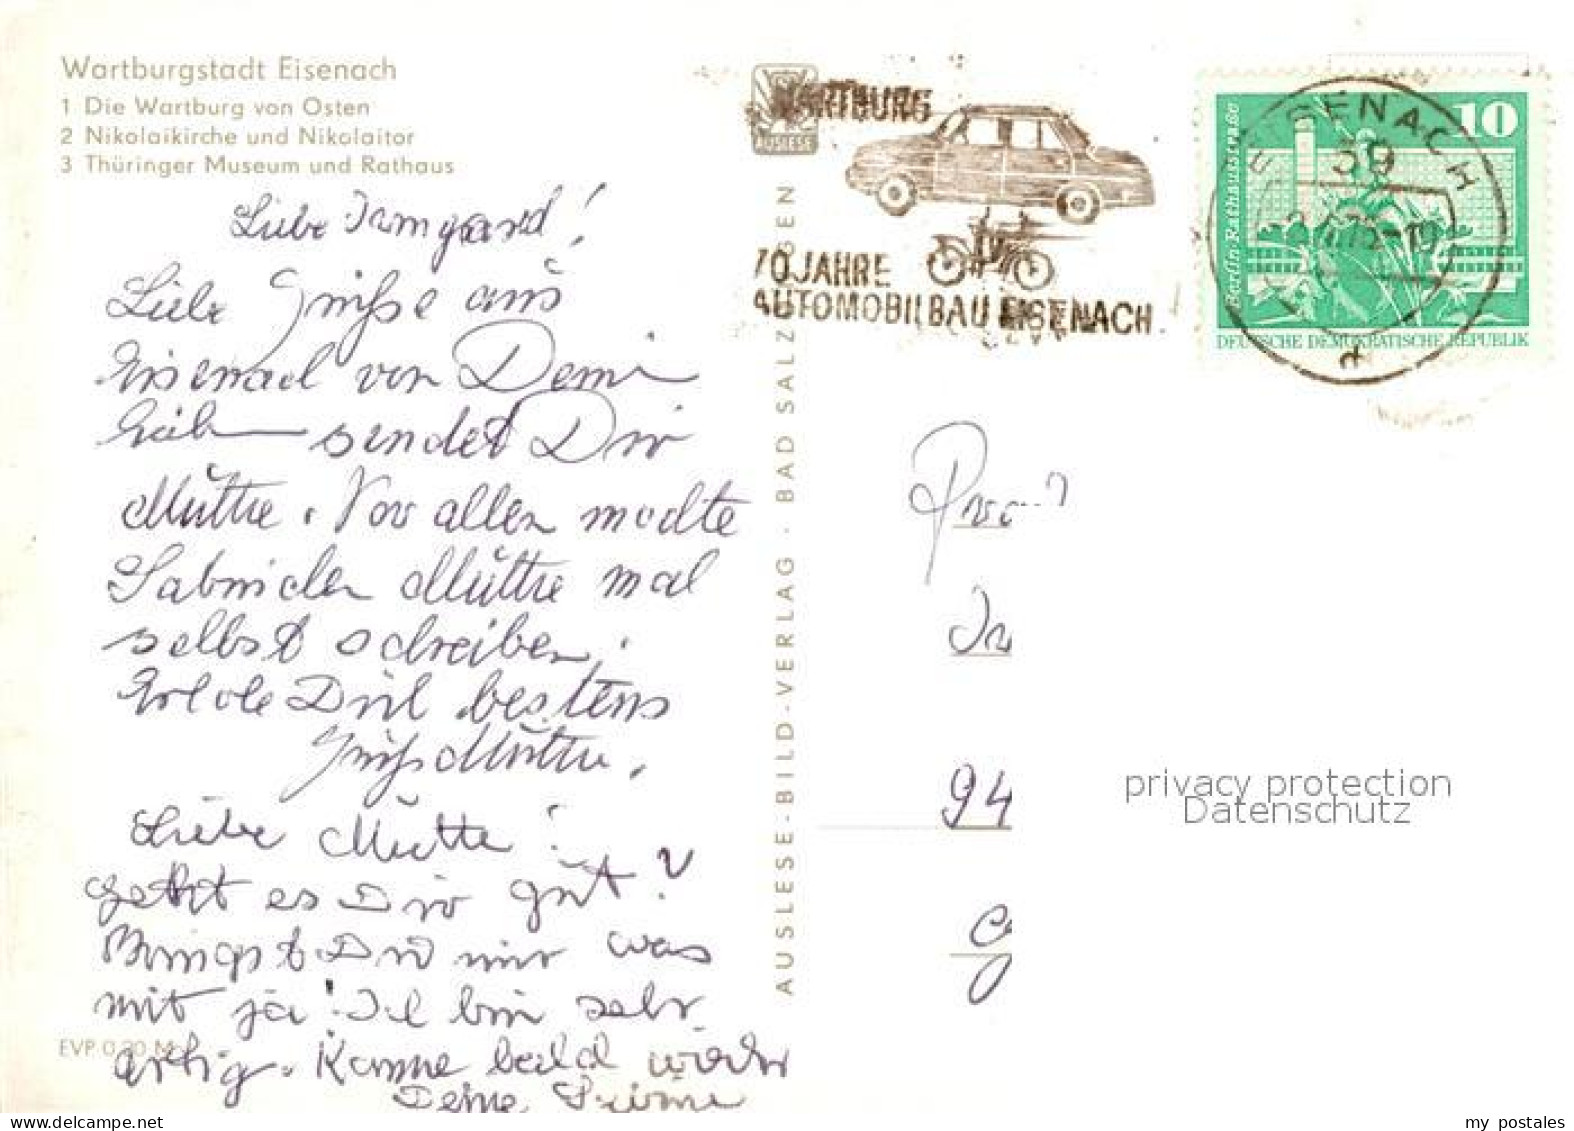 Wartburgstadt Eisenach
1 Die Wartburg von Osten
2 Nikolaikirche und Nikolaitor
3 Thüringer Museum und Rathaus
Liebe Irmgard!
Liebe Grüße aus
Eisenach von Deini
sendet Dir
Mutti. Vor allen mochte
Mutti mal
selbst schreiben.
Erhole Dich bestens
Gruß Mutti.
Liebe Mutti!
geht es Dir gut?
Bringst Du mir was
mit ja! Ich bin sehr
artig. Komme bald wieder
Deine
EVP 0,20 M
AUSLESE-BILD-VERLAG · BAD SALZUNGEN
AUSLESE
WARTBURG
70 JAHRE
AUTOMOBILBAU EISENACH
EISENACH
59
d
10
Berlin, Rathausstraße
DEUTSCHE DEMOKRATISCHE REPUBLIK
94
privacy protection
Datenschutz
my postales